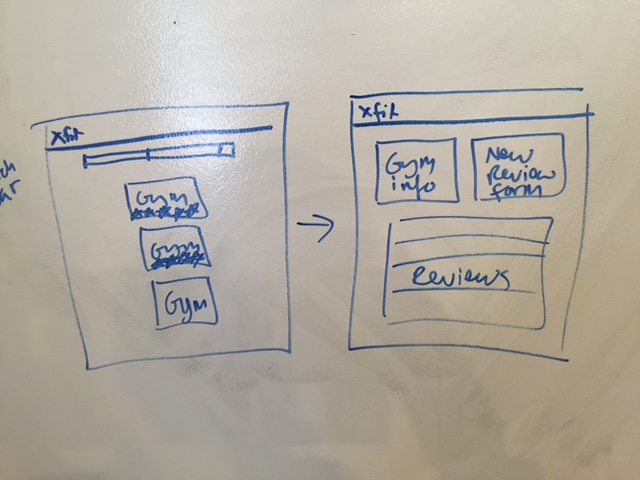 xfit
Gym
Gym
Gym
xfit
Gym
info
New
Review
form
Reviews